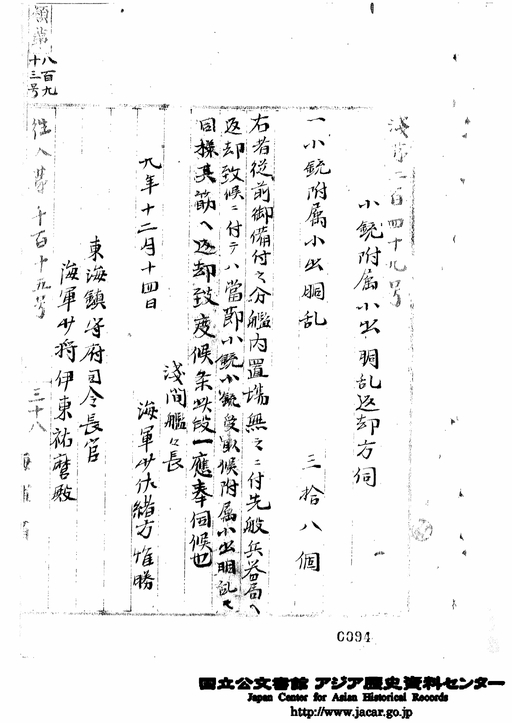 浅第二百四十九号
小銃附属小出胴乱返却方伺
一小銃附属小出胴乱　三拾八個
右者従前御備付之分艦内置場無之ニ付先般兵器局ヘ
返却致候ニ付テハ當節小銃受取候附属小出胴乱モ
同様其筋ヘ返却致度候条此段一應奉伺候也
浅間艦々長
九年十二月十四日　海軍少佐緒方惟勝
東海鎮守府司令長官
海軍少将伊東祐麿殿
八百九
十三号
往入第千百十五号
三十八
C094
国立公文書館 アジア歴史資料センター
Japan Center for Asian Historical Records
http://www.jacar.go.jp